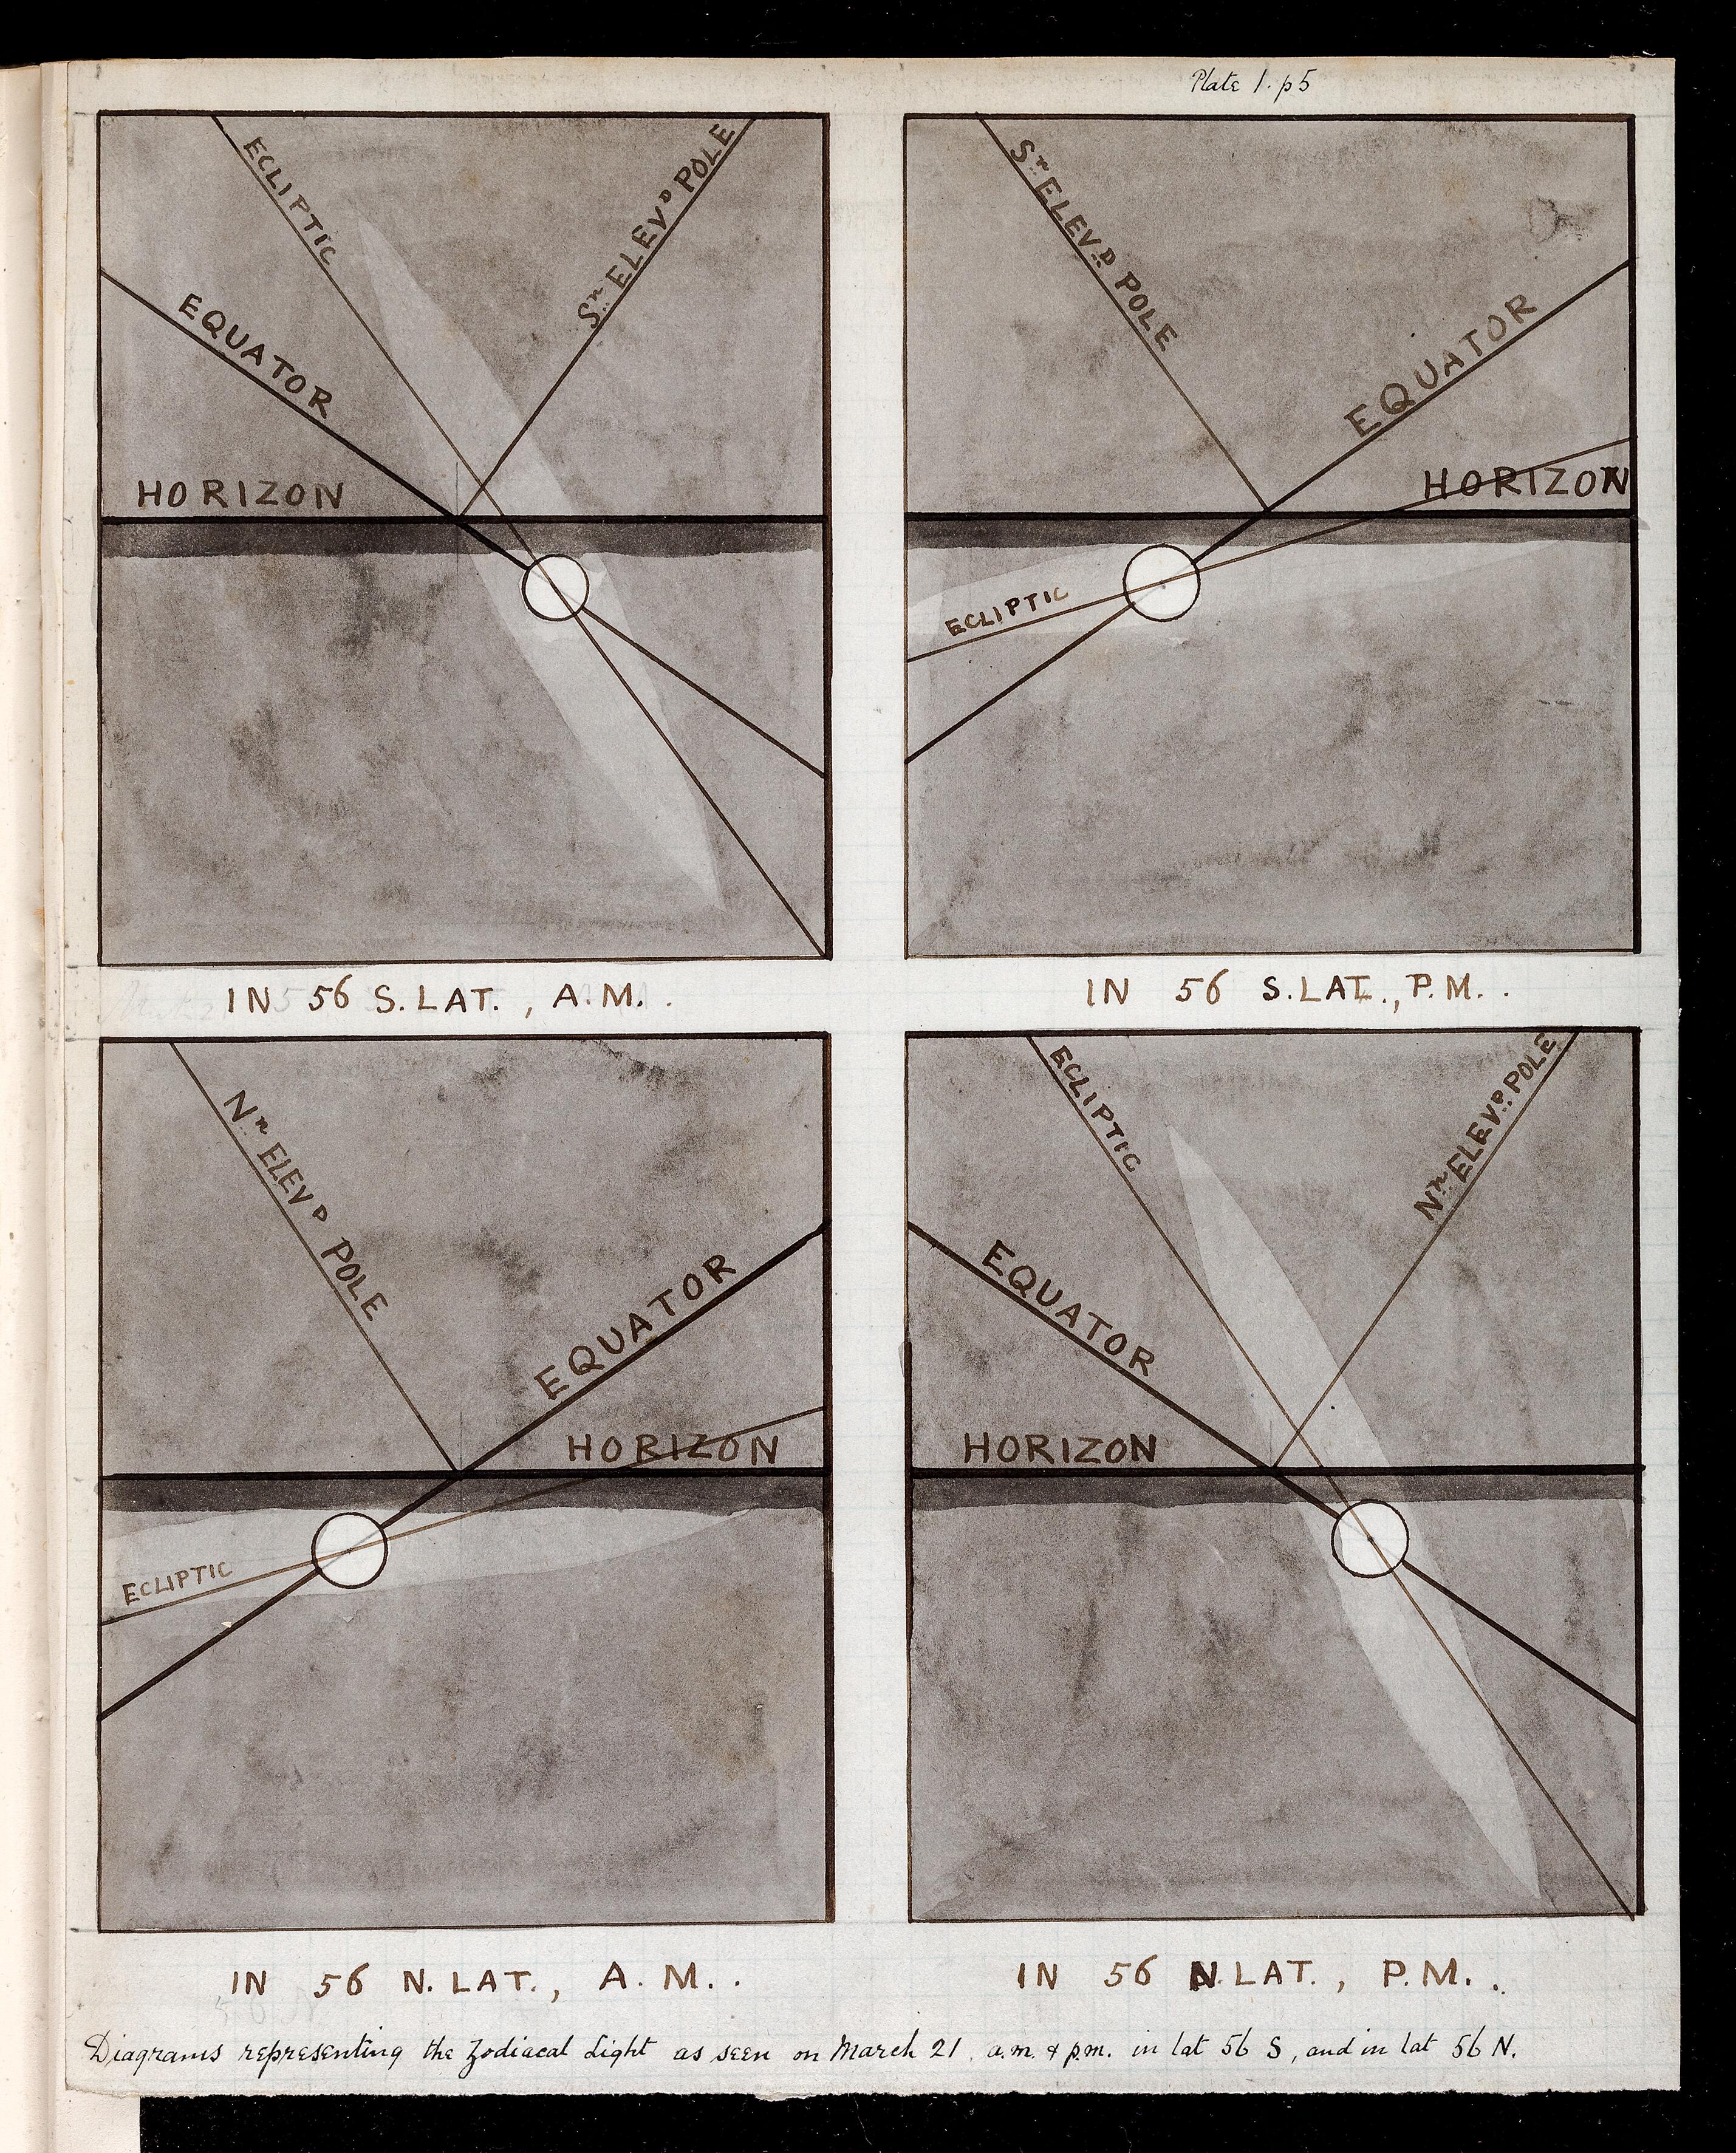 Plate 1. p5
ECLIPTIC
Sʳⁿ ELEVᴰ POLE
EQUATOR
HORIZON
IN 56 S. LAT., A.M..
Sʳⁿ ELEVᴰ POLE
EQUATOR
HORIZON
ECLIPTIC
IN 56 S. LAT., P.M..
Nʳⁿ ELEVᴰ POLE
EQUATOR
HORIZON
ECLIPTIC
IN 56 N. LAT., A.M..
ECLIPTIC
Nʳⁿ ELEVᴰ POLE
EQUATOR
HORIZON
IN 56 N. LAT., P.M..
Diagrams representing the Zodiacal Light as seen on March 21, a.m. & p.m. in lat 56 S, and in lat 56 N.